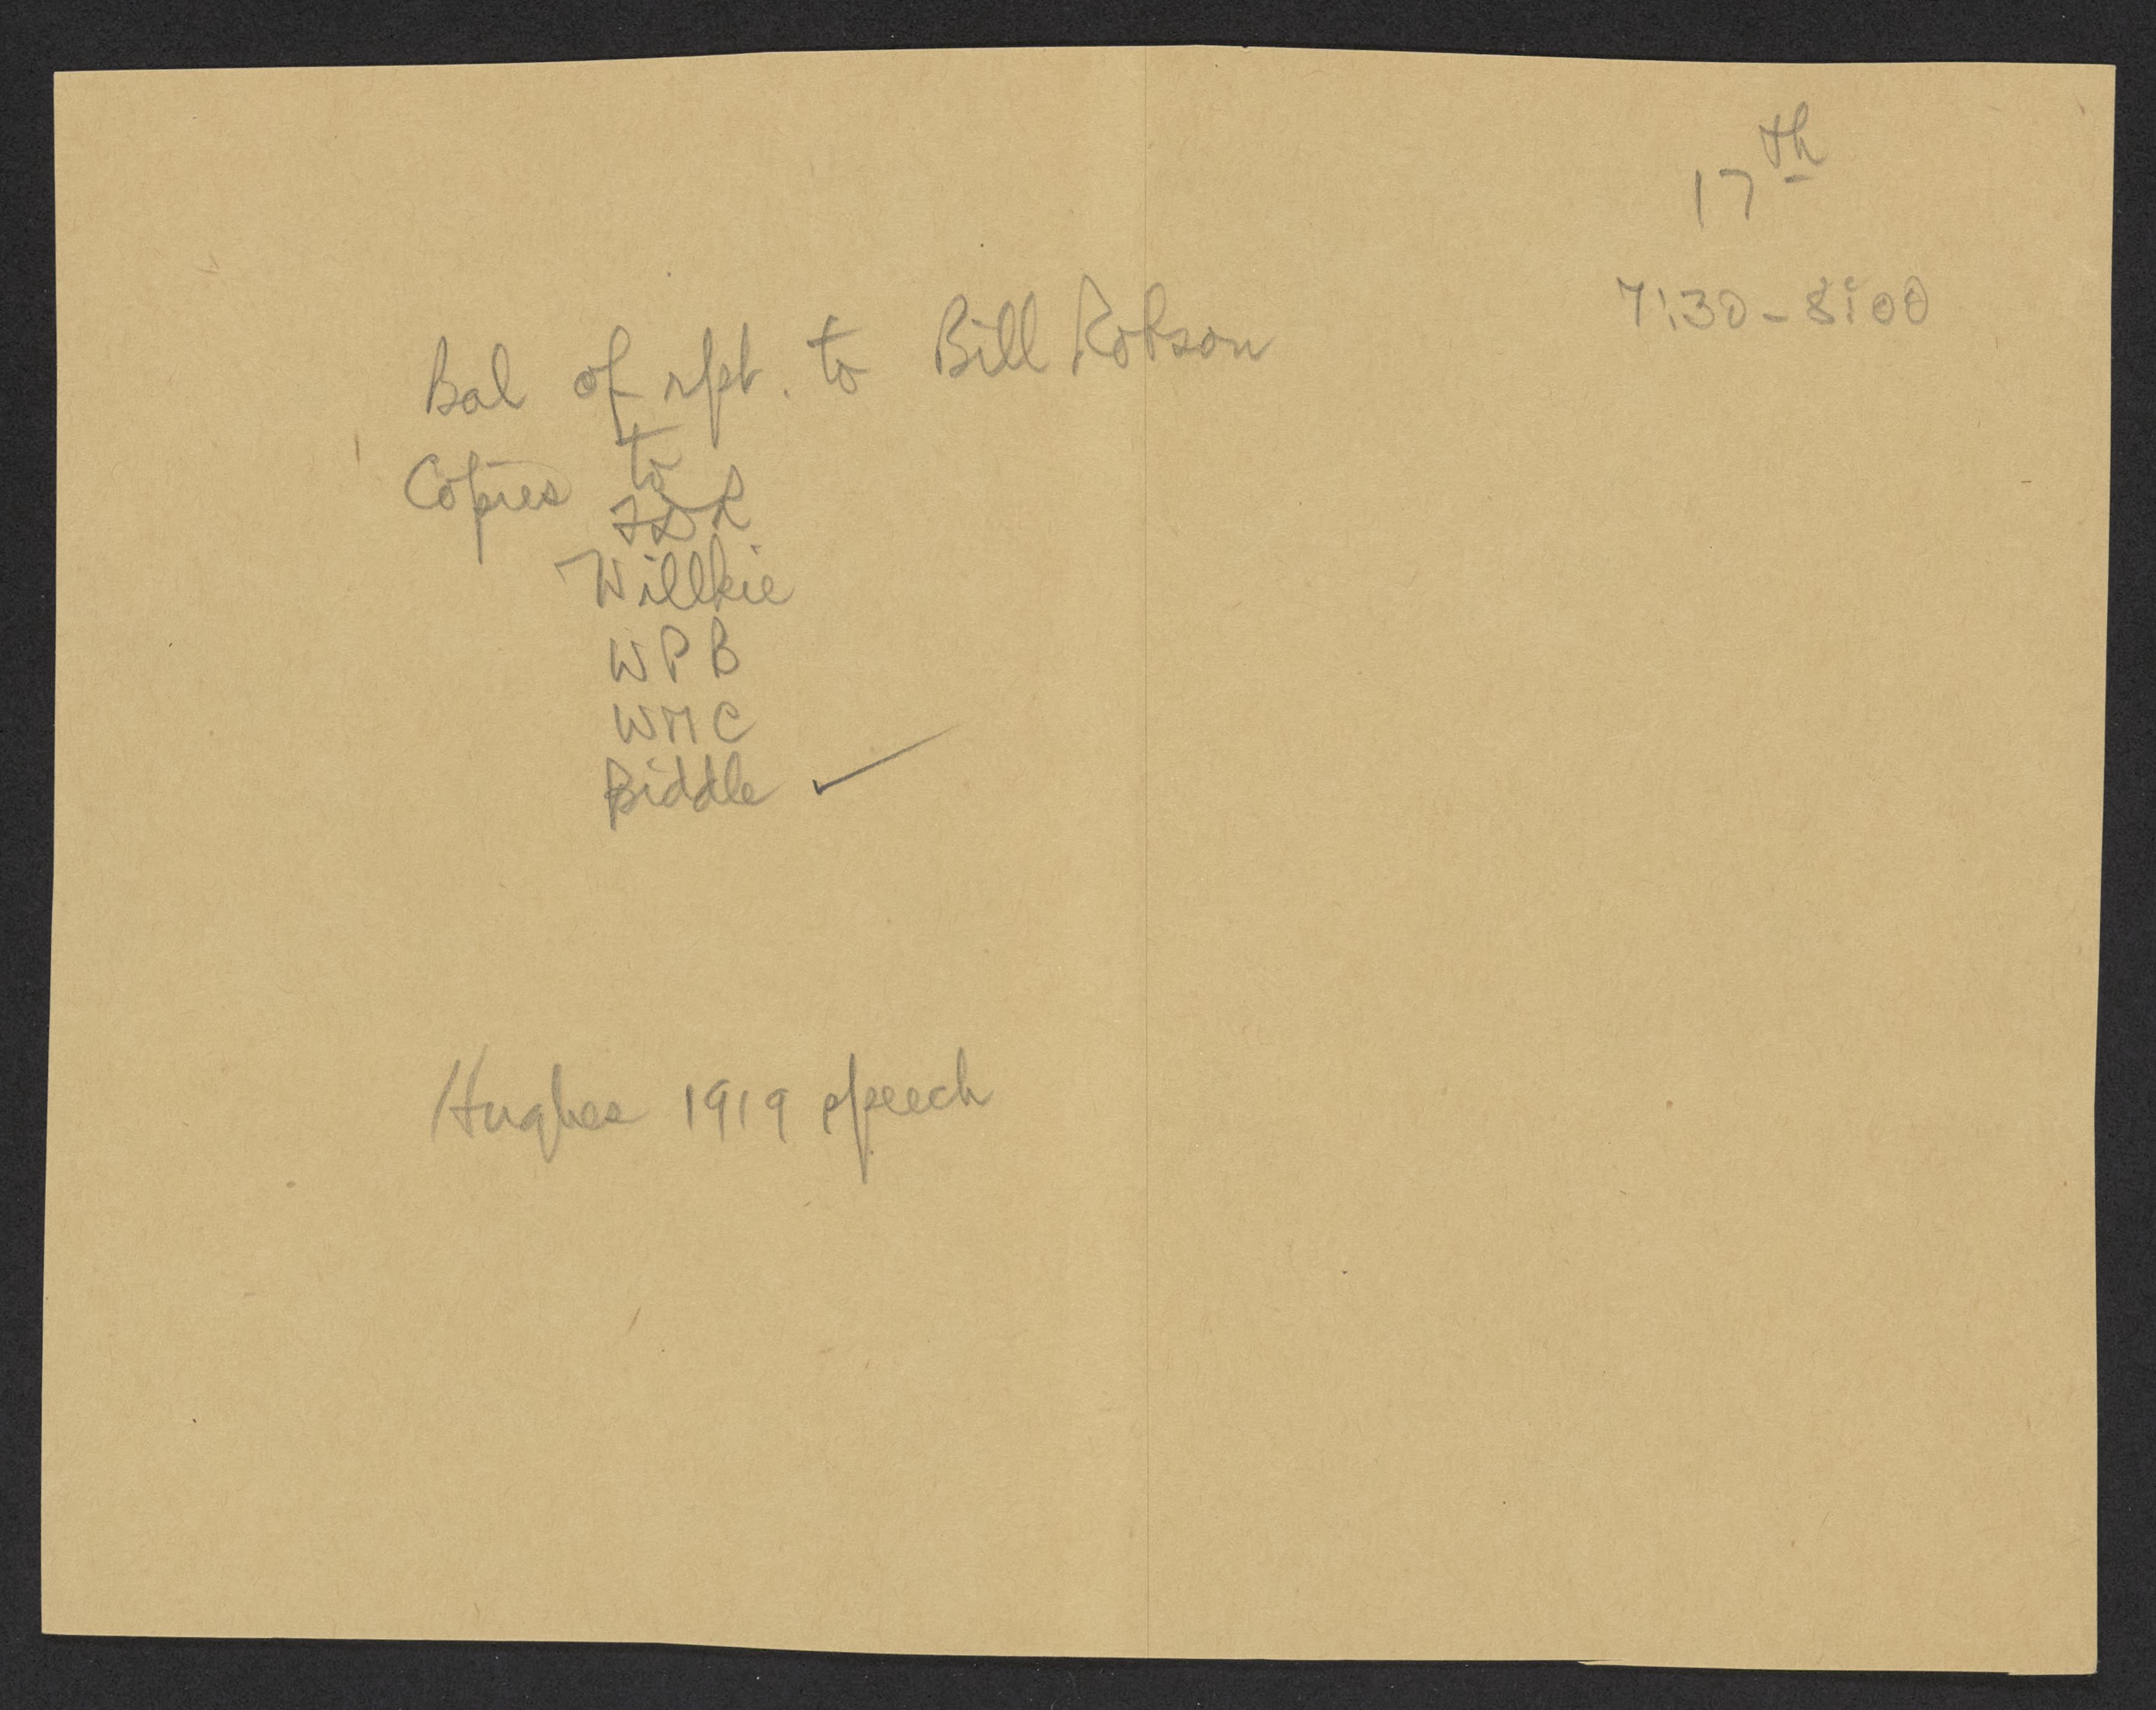 17th
7:30 - 8:00
Bal of rpt. to Bill Robson
Copies to
FDR
Willkie
WPB
WMC
Biddle ✓
Hughes 1919 speech